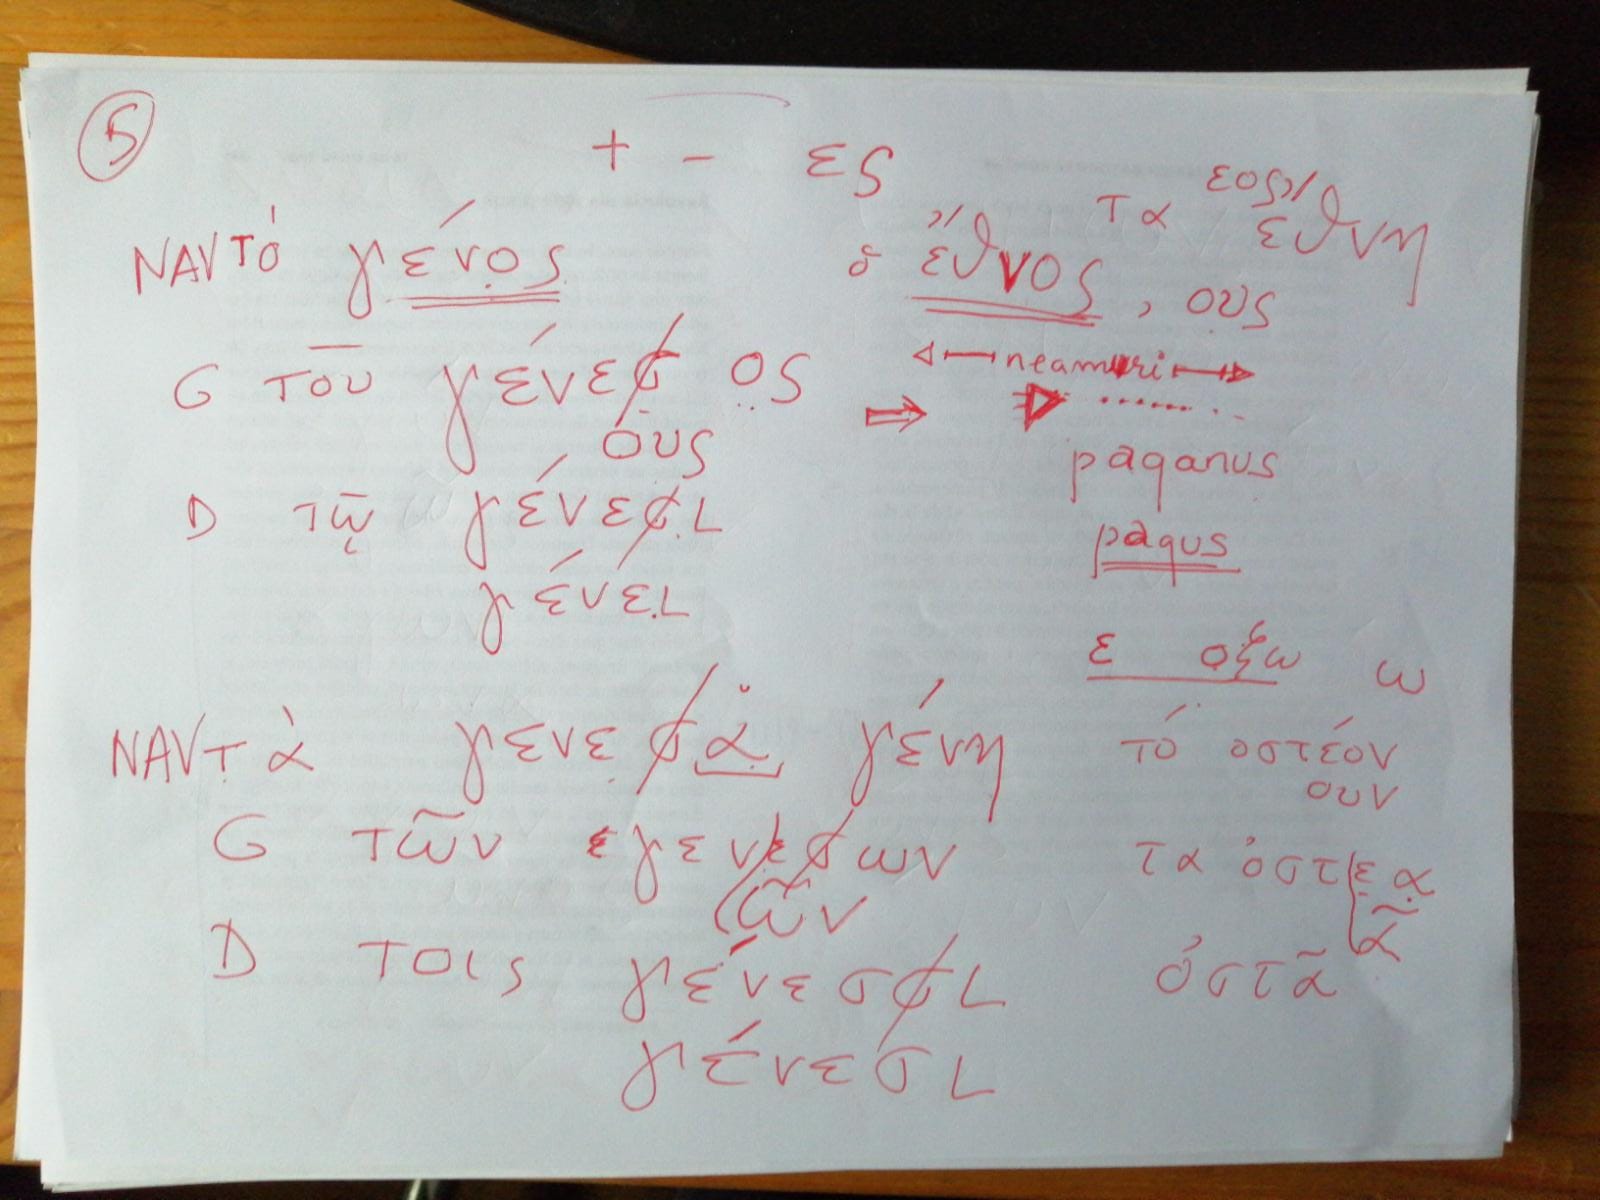 5
+ - ες
ΝΑV τό γένος
G του γένεσ ος
ους
D τῷ γένεσι
γένει
ΝΑV τὰ γενεσα γένη
G τῶν γενεσων
ῶν
D τοις γένεσσι
γένεσι
εος/
τα εθνη
ὁ ἔθνος, ους
neamuri
paganus
pagus
ε οξω ω
τό οστέον
ουν
τα ὀστεα
ᾶ
ὀστᾶ